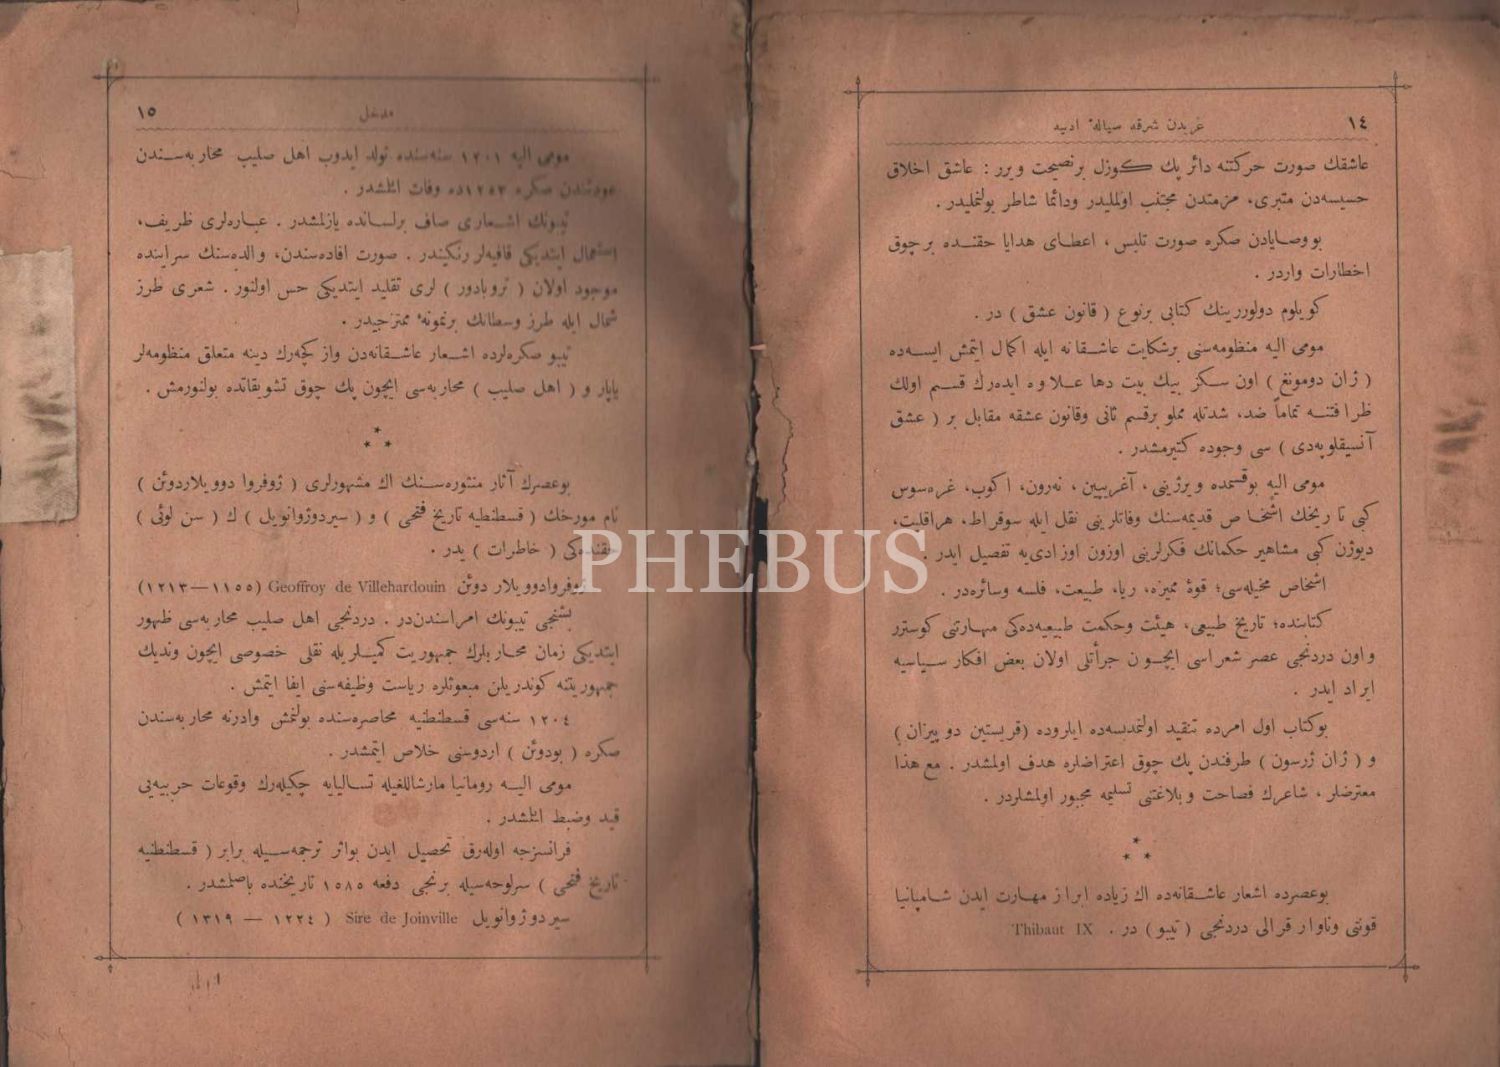 ١٤ غربدن شرقه سیالهٔ ادبیه
عاشقك صورت حركتنه دائر پك كوزل بر نصیحت ویرر : عاشق اخلاق
حسیسه‌دن متبری، مزمتدن مجتنب اولملیدر ودائما شاطر بولنملیدر .
بووصایادن صكره صورت تلبس ، اعطای هدایا حقنده برچوق
اخطارات واردر .
كویلوم دولوررینك كتابی برنوع ( قانون عشق ) در .
مومی الیه منظومه‌سنی برشكایت عاشقانه ایله اكمال ایتمش ایسه‌ده
( ژان دومونغ ) اون سكز بیك بیت دها علاوه ایده‌رك قسم اولك
ظرافتنه تماماً ضد، شدتله مملو برقسم ثانی وقانون عشقه مقابل بر ( عشق
آنسیقلوپه‌دی ) سی وجوده كتیرمشدر .
مومی الیه بوقسمده ویرژینی ، آغریپین ، نه‌رون، اكوب، غره‌سوس
كبی تاریخك اشخاص قدیمه‌سنك وفاتلرینی نقل ایله سوقراط، هراقلیت،
دیوژن كبی مشاهیر حكمانك فكرلرینی اوزون اوزادی‌یه تفصیل ایدر .
اشخاص مخیله‌سی؛ قوهٔ ممیزه، ریا، طبیعت، فلسه وسائره‌در .
كتابنده؛ تاریخ طبیعی، هیئت وحكمت طبیعیه‌ده‌كی مهارتنی كوسترر
واون دردنجی عصر شعراسی ایچون جرأتلی اولان بعض افكار سیاسیه
ایراد ایدر .
بوكتاب اول امرده تنقید اولنمدیسه‌ده ایلروده (قریستین دوپیزان)
و ( ژان ژرسون ) طرفندن پك چوق اعتراضلره هدف اولمشدر . مع هذا
معترضلر ، شاعرك فصاحت وبلاغتنی تسلیمه مجبور اولمشلردر .
⁂
بوعصرده اشعار عاشقانه‌ده اك زیاده ابراز مهارت ایدن شامپانیا
قونتی وناوار قرالی دردنجی ( تیبو ) در . Thibaut IX
١٥ مدخل
مومی الیه ١٢٠١ سنه‌سنده تولد ایدوب اهل صلیب محاربه‌سندن
عودتندن صكره ١٢٥٣ده وفات ائلشدر .
تیبونك اشعاری صاف برلسانده یازلمشدر . عباره‌لری ظریف،
استعمال ایتدیكی قافیه‌لر رنكیندر . صورت افاده‌سندن، والده‌سنك سراینده
موجود اولان ( تروبادور ) لری تقلید ایتدیكی حس اولنور . شعری طرز
شمال ایله طرز وسطانك برنمونهٔ ممتزجیدر .
تیبو صكره‌لرده اشعار عاشقانه‌دن واز كچه‌رك دینه متعلق منظومه‌لر
یاپار و ( اهل صلیب ) محاربه‌سی ایچون پك چوق تشویقاتده بولنورمش .
⁂
بوعصرك آثار منثوره‌سنك اك مشهورلری ( ژوفروا دوویلاردوئن )
نام مورخك ( قسطنطیه تاریخ فتحی ) و ( سیردوژوانویل ) ك ( سن لوئی )
حقنده‌كی ( خاطرات ) یدر .
ژوفروادوویلار دوئن Geoffroy de Villehardouin (١١٥٥—١٢١٣)
بشنجی تیبونك امراسندن‌در . دردنجی اهل صلیب محاربه‌سی ظهور
ایتدیكی زمان محاربلرك جمهوریت كمیلریله نقلی خصوصی ایچون وندیك
جمهوریتنه كوندریلن مبعوثلره ریاست وظیفه‌سنی ایفا ایتمش .
١٢٠٤ سنه‌سی قسطنطنیه محاصره‌سنده بولنمش وادرنه محاربه‌سندن
صكره ( بودوئن ) اردوسنی خلاص ایتمشدر .
مومی الیه رومانیا مارشاللغیله تسالیایه چكیله‌رك وقوعات حربیه‌یی
قید وضبط ائلشدر .
فرانسزجه اوله‌رق تحصیل ایدن بواثر ترجمه‌سیله برابر ( قسطنطنیه
تاریخ فتحی ) سرلوحه‌سیله برنجی دفعه ١٥٨٥ تاریخنده باصلمشدر .
سیردوژوانویل Sire de Joinville ( ١٢٢٤ — ١٣١٩ )
PHEBUS